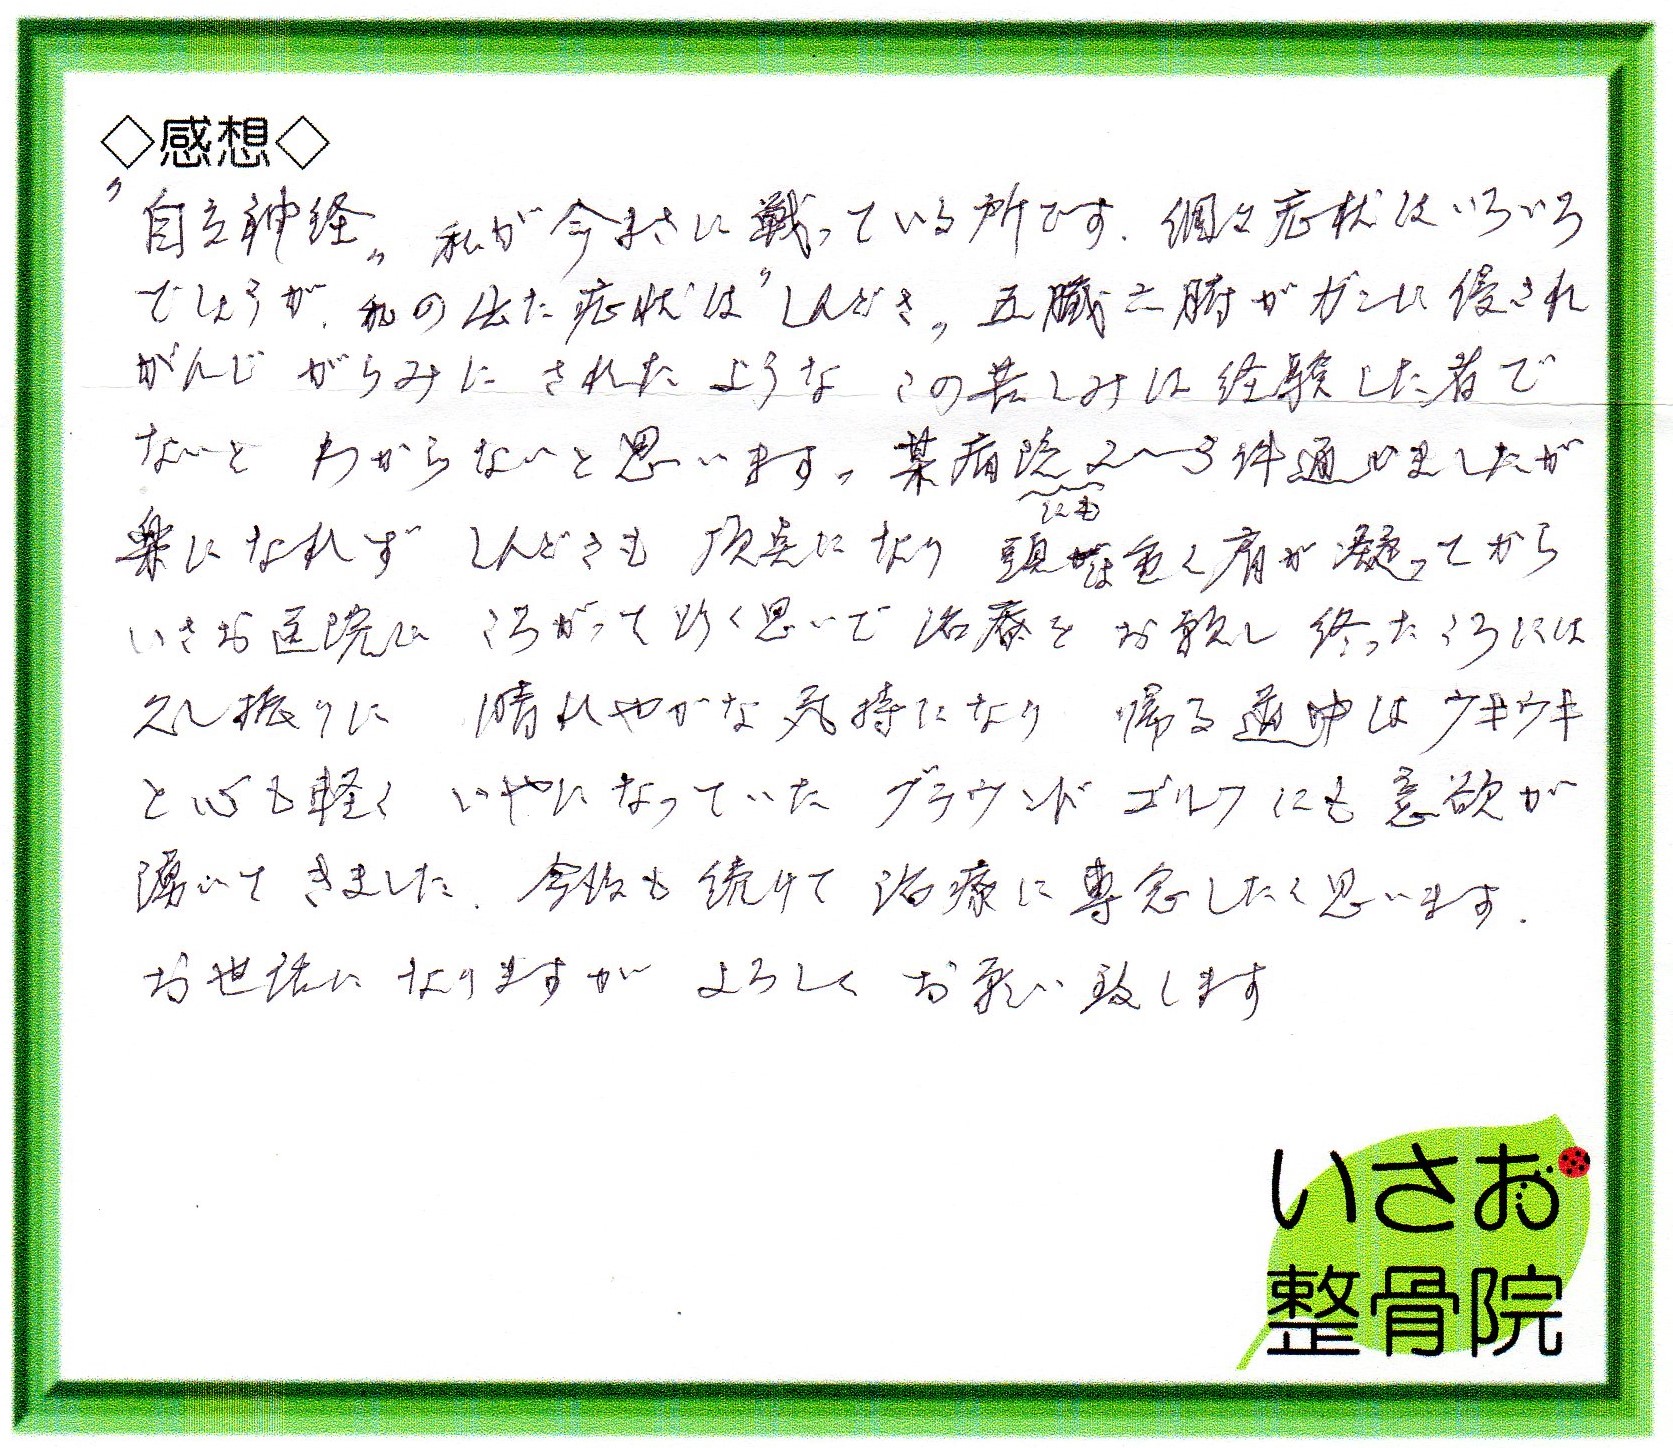 ◇感想◇
〝自立神経〟私が今まさに戦っている所です．個々症状はいろいろ
でしょうが、私の出た症状は〝しんどさ〟五臓六腑がガンに侵され
がんじがらみにされたような この苦しみは経験した者で
ないと わからないと思います。某病院2〜3件通いましたが
にも
楽になれず しんどさも 頂点になり 頭は重く肩が凝ってから
いさお医院に ころがって行く思いで 治療を お願し 終ったころには
久し振りに 晴れやかな気持になり 帰る途中はウキウキ
と心も軽く いやになっていた グラウンド ゴルフにも意欲が
湧いて きました．今後も続けて治療に専念したく思います．
お世話に なりますが よろしく お願い致します
いさお
整骨院